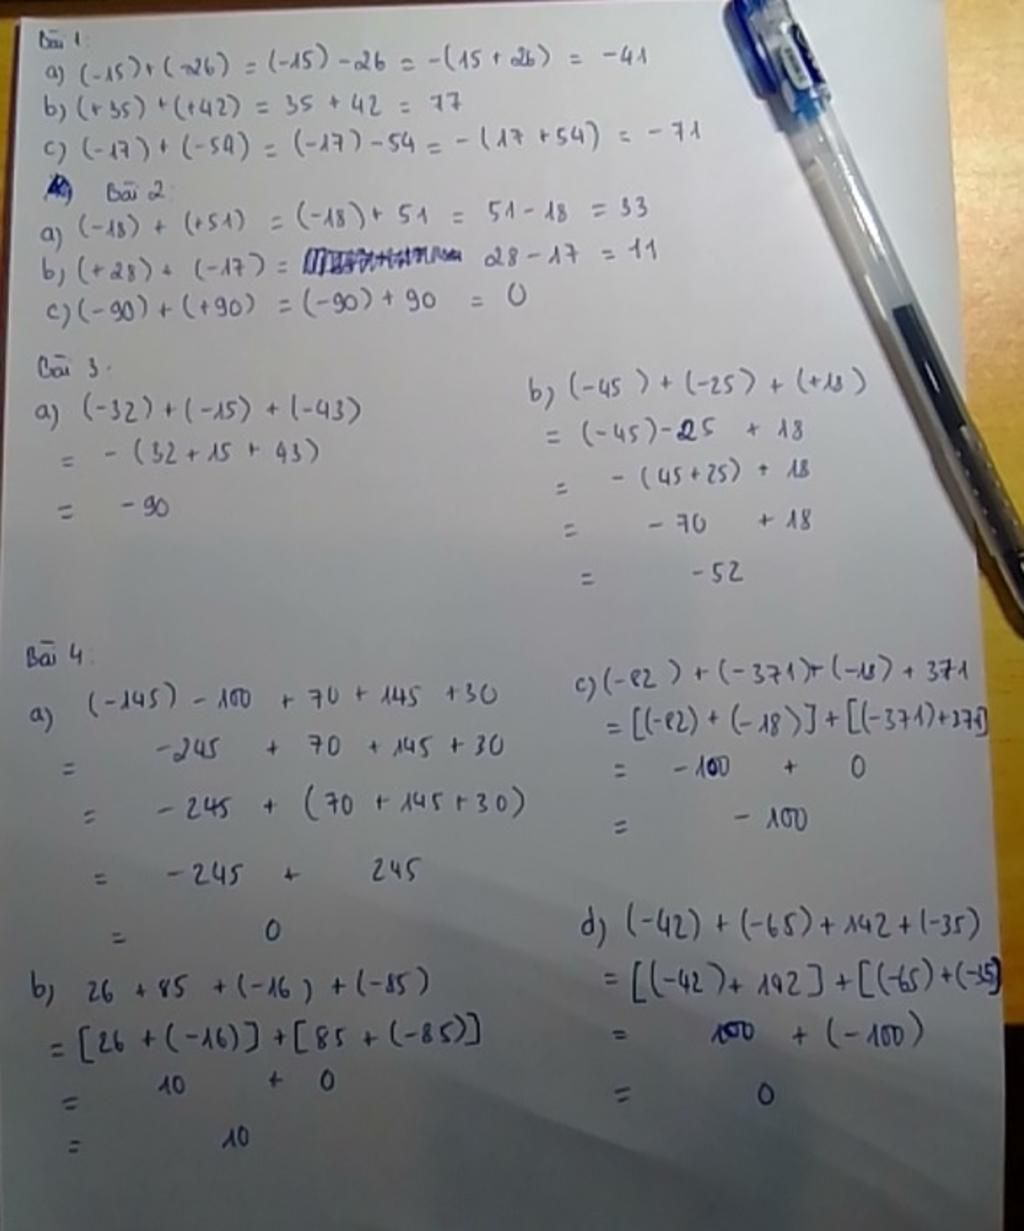 Bài 1:
a) (-15)+(-26) = (-15) -26 = -(15 + 26) = -41
b) (+35) + (+42) = 35 + 42 = 77
c) (-17) + (-54) = (-17) - 54 = - (17 + 54) = - 71
Bài 2:
a) (-18) + (+51) = (-18) + 51 = 51 - 18 = 33
b) (+28) + (-17) = 28 - 17 = 11
c) (-90) + (+90) = (-90) + 90 = 0
Bài 3:
a) (-32) + (-15) + (-43)
= - (32 + 15 + 43)
= - 90
b) (-45) + (-25) + (+18)
= (-45) - 25 + 18
= - (45+25) + 18
= - 70 + 18
= - 52
Bài 4:
a) (-145) - 100 + 70 + 145 + 30
= -245 + 70 + 145 + 30
= - 245 + (70 + 145 + 30)
= - 245 + 245
= 0
b) 26 + 85 + (-16) + (-85)
= [26 + (-16)] + [85 + (-85)]
= 10 + 0
= 10
c) (-82) + (-371) + (-18) + 371
= [(-82) + (-18)] + [(-371) + 371]
= - 100 + 0
= - 100
d) (-42) + (-65) + 142 + (-35)
= [(-42) + 142] + [(-65) + (-35)]
= 100 + (-100)
= 0